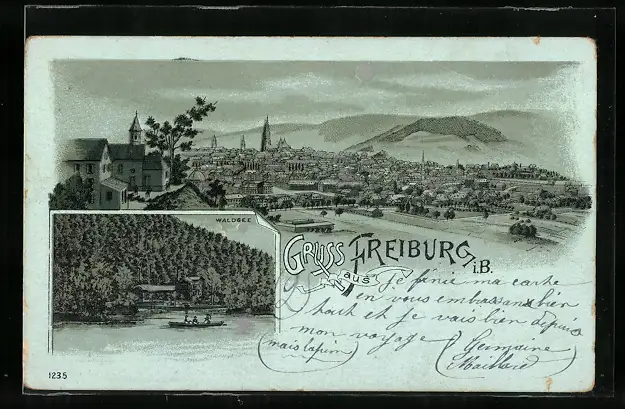 WALDSEE
GRUSS
aus
FREIBURG
i.B.
Je finie ma carte
en vous embrassant bien
haut et je vais bien depuis
mon voyage
mais lapin
Germaine
Maillard
1235